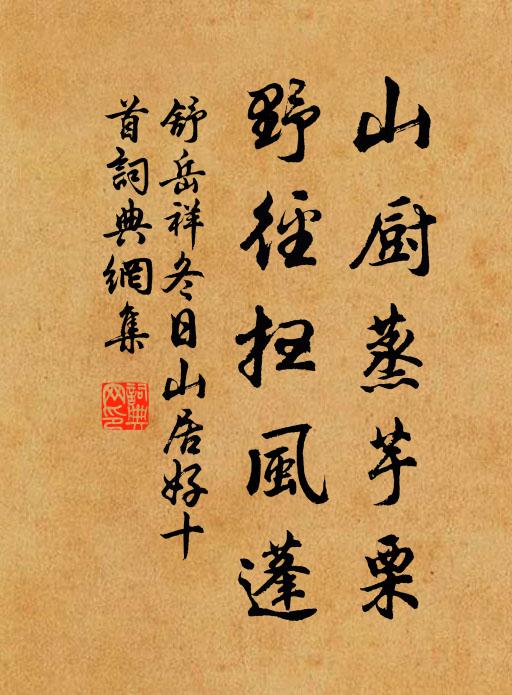 山厨蒸芋栗
野徑風蓬
舒岳祥冬日山居好十
首詞典網集
詞典
网印